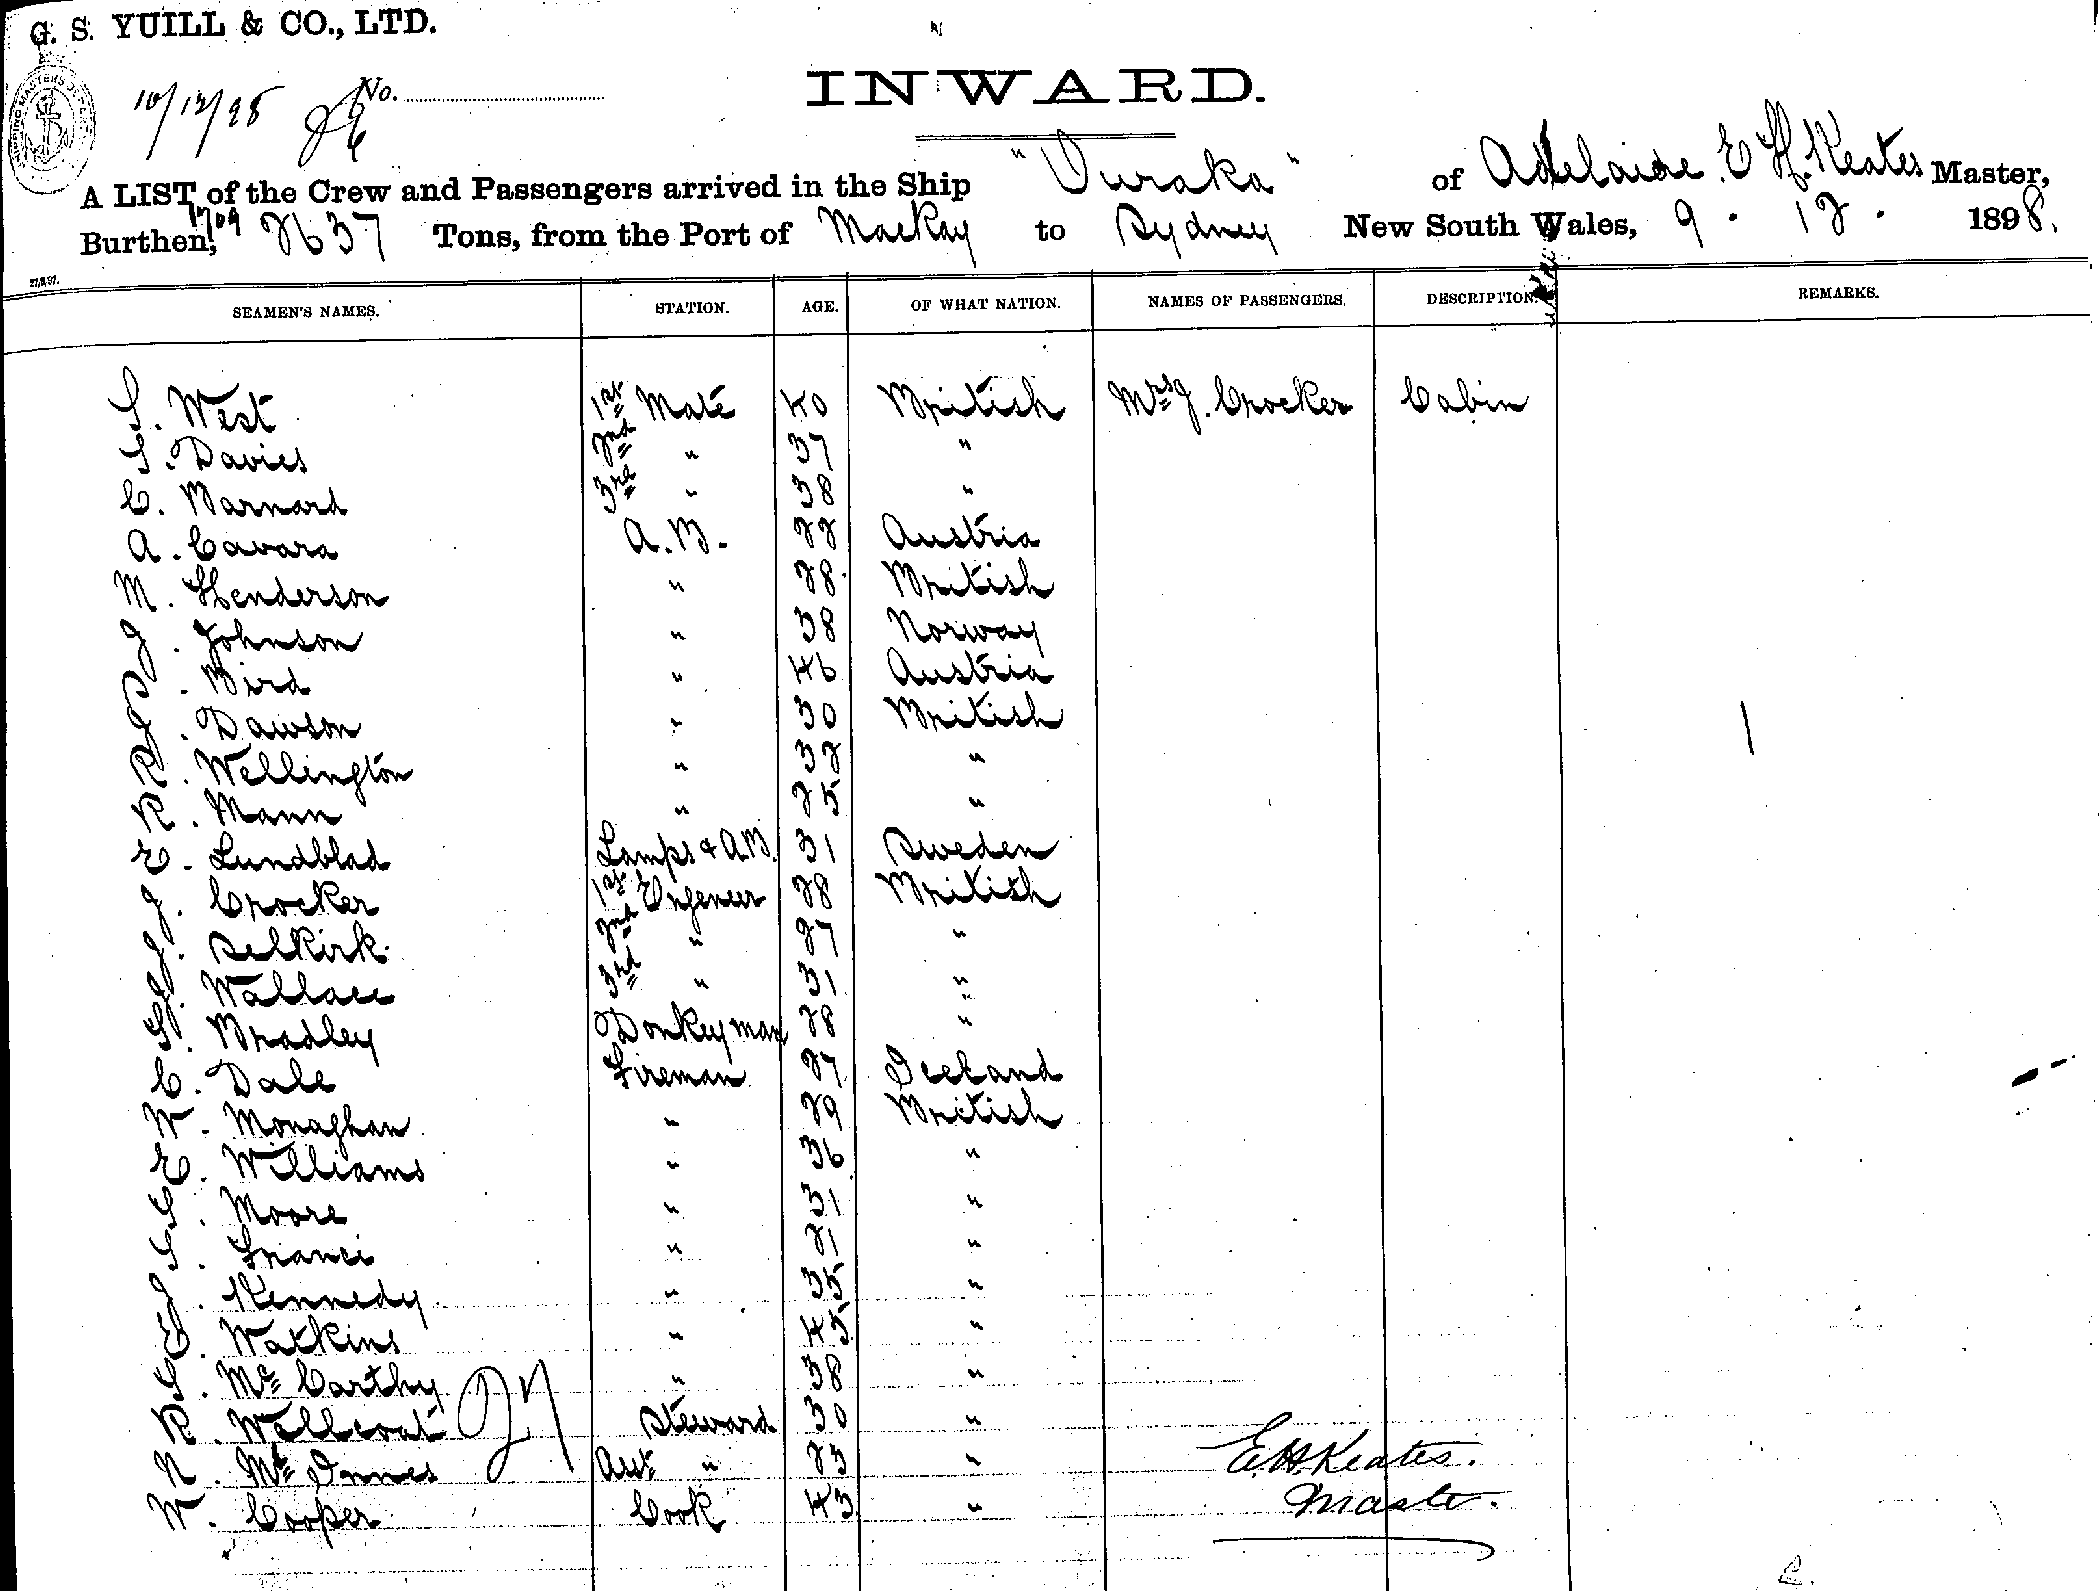 G. S. YUILL & CO., LTD.
10/12/98 No.
INWARD.
A LIST of the Crew and Passengers arrived in the Ship "Ouraka" of Adelaide E H. Keates Master,
Burthen, 1709 2637 Tons, from the Port of Mackay to Sydney New South Wales, 9 . 12 . 1898.
SEAMEN'S NAMES. STATION. AGE. OF WHAT NATION. NAMES OF PASSENGERS. DESCRIPTION. REMARKS.
S. West 1st Mate 40 British Mrs J. Crocker Cabin
S. Davies 2nd " 37 "
C. Barnard 3rd " 38 "
A. Cavara A.B. 22 Austria
M. Henderson " 28 British
J. Johnson " 38 Norway
P. Bird " 46 Austria
J. Dawson " 30 British
R. Wellington " 32 "
R. Mann " 25 "
E. Lundblad Lamps & A.B. 31 Sweden
J. Crocker 1st Engeneer 28 British
J. Selkirk 2nd " 27 "
J. Wallace 3rd " 31 "
G. Bradley Donkeyman 28 "
C. Dale Fireman 27 Iceland
W. Monaghan " 29 British
E. Williams " 36 "
S. Moore " 31 "
S. Franci " 21 "
J. Kennedy " 35 "
E. Watkins " 45 "
S. Mc Carthy " 38 "
R. Wellcoat 27 Steward 30 "
N. Mc Innes Asst " 23 "
W. Cooper Cook 43 "
E.H. Keates.
Master.